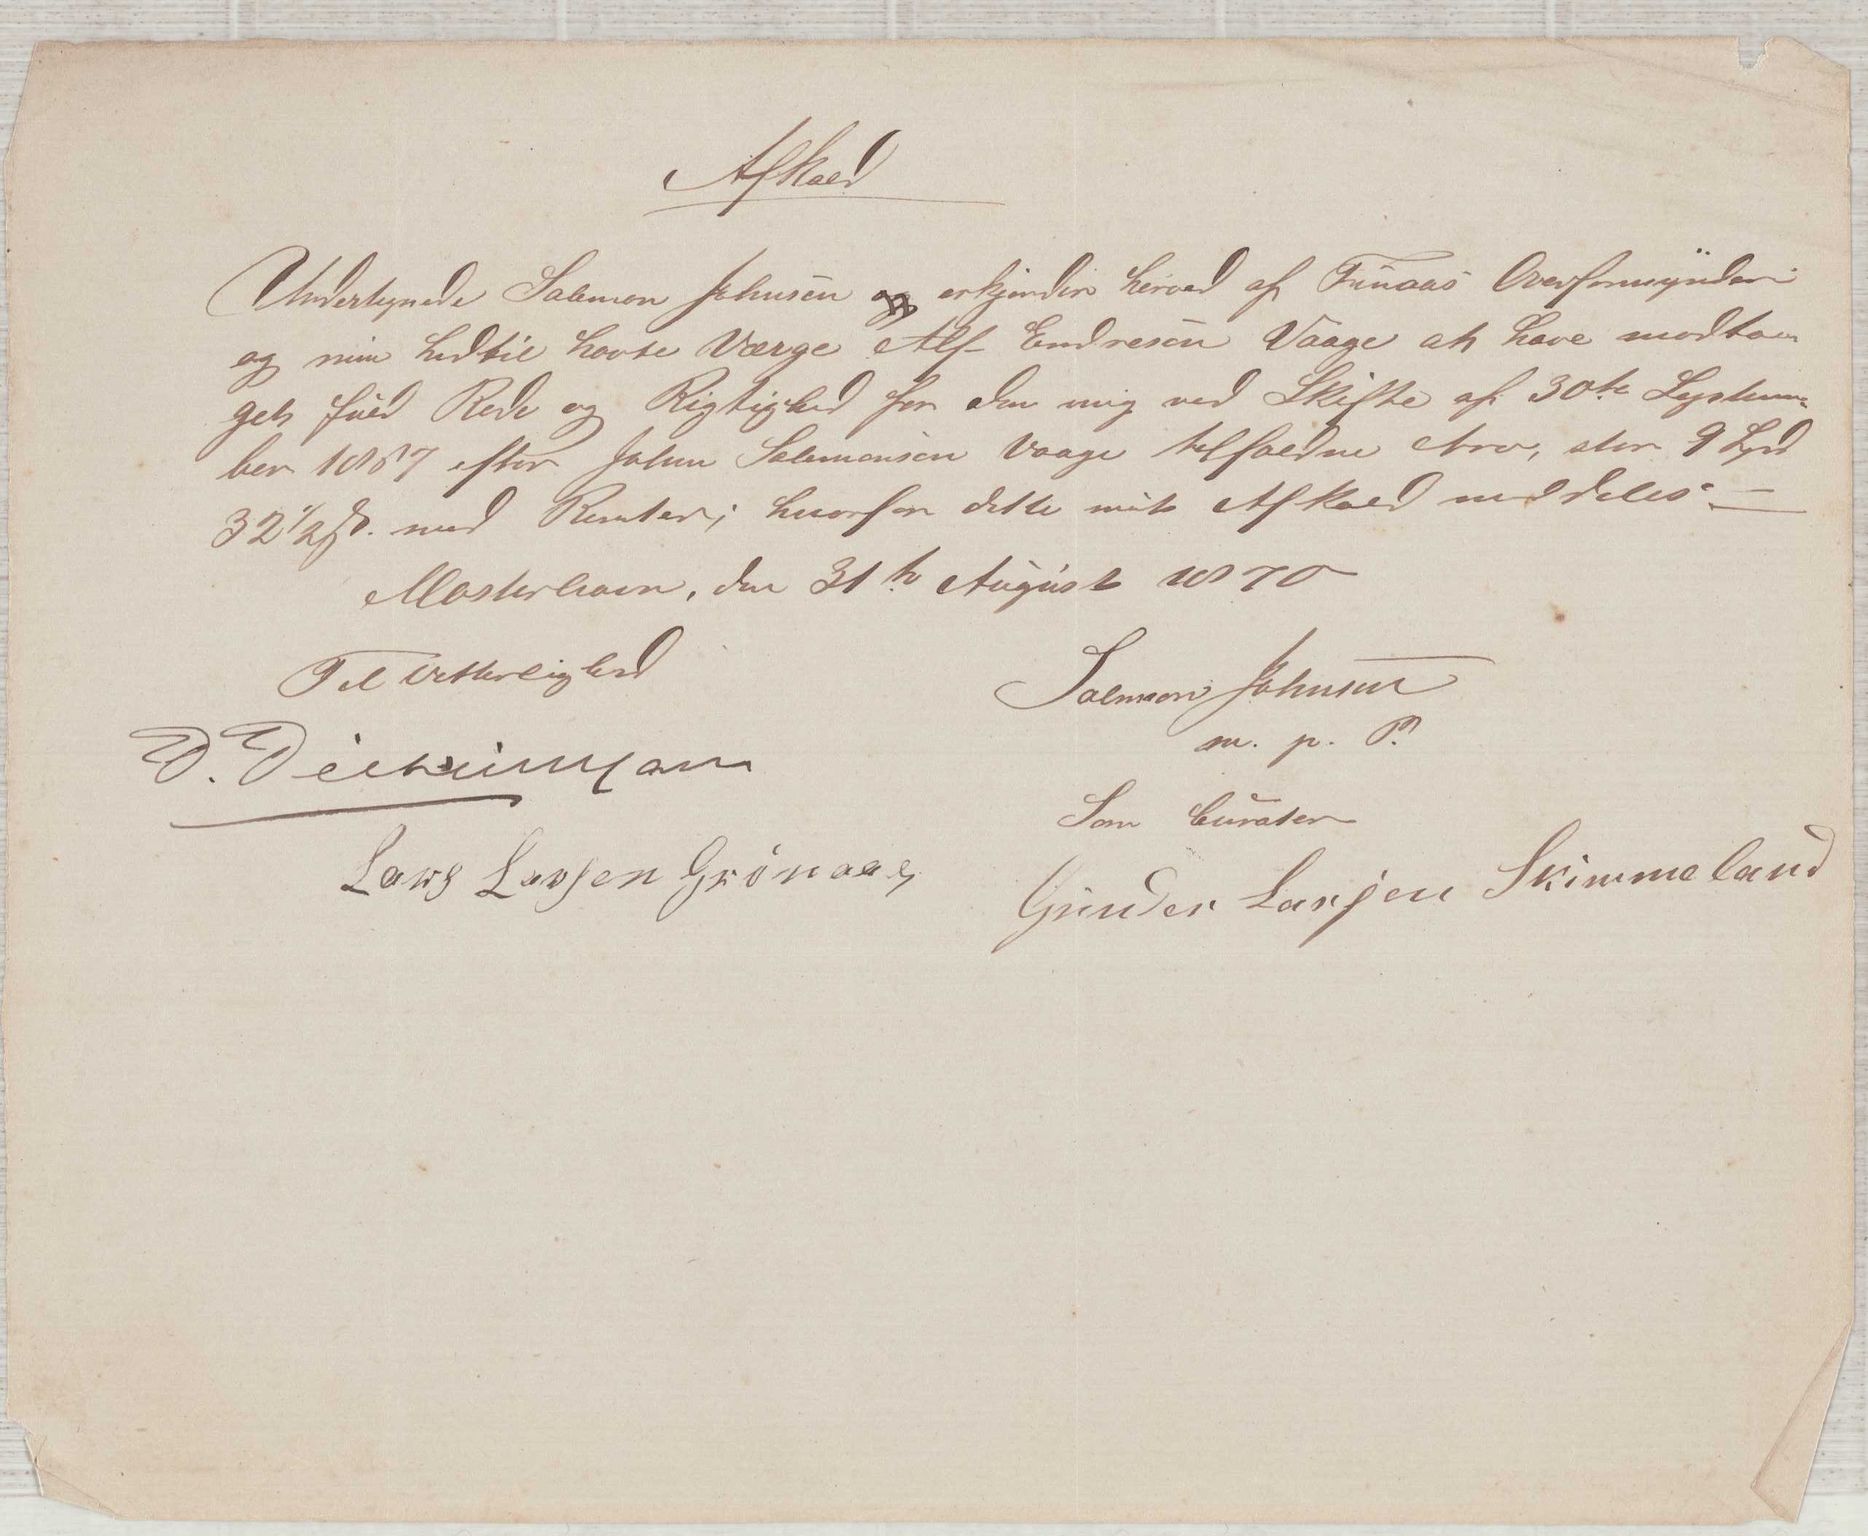 Afkald
Undertegnede Salemon Johnsen erkjender herved af Finaas Overformynderi
og min hidtil havte Værge Alf Endresen Vaage at have modta-
get fuld Rede og Rigtighed for den mig ved Skifte af 30te Septem-
ber 1867 efter John Salemonsen Vaage tilfaldne Arv, stor 9 Spd
32 1/2 ß. med Renter; hvorfor dette mit Afkald meddeles.
Mosterhavn, den 31te August 1870
Til Vitterlighed
Salemon Johnsen
m. p. P.
Som Curator
Lars Larsen Grönaas
Gunder Larsen Skimmeland